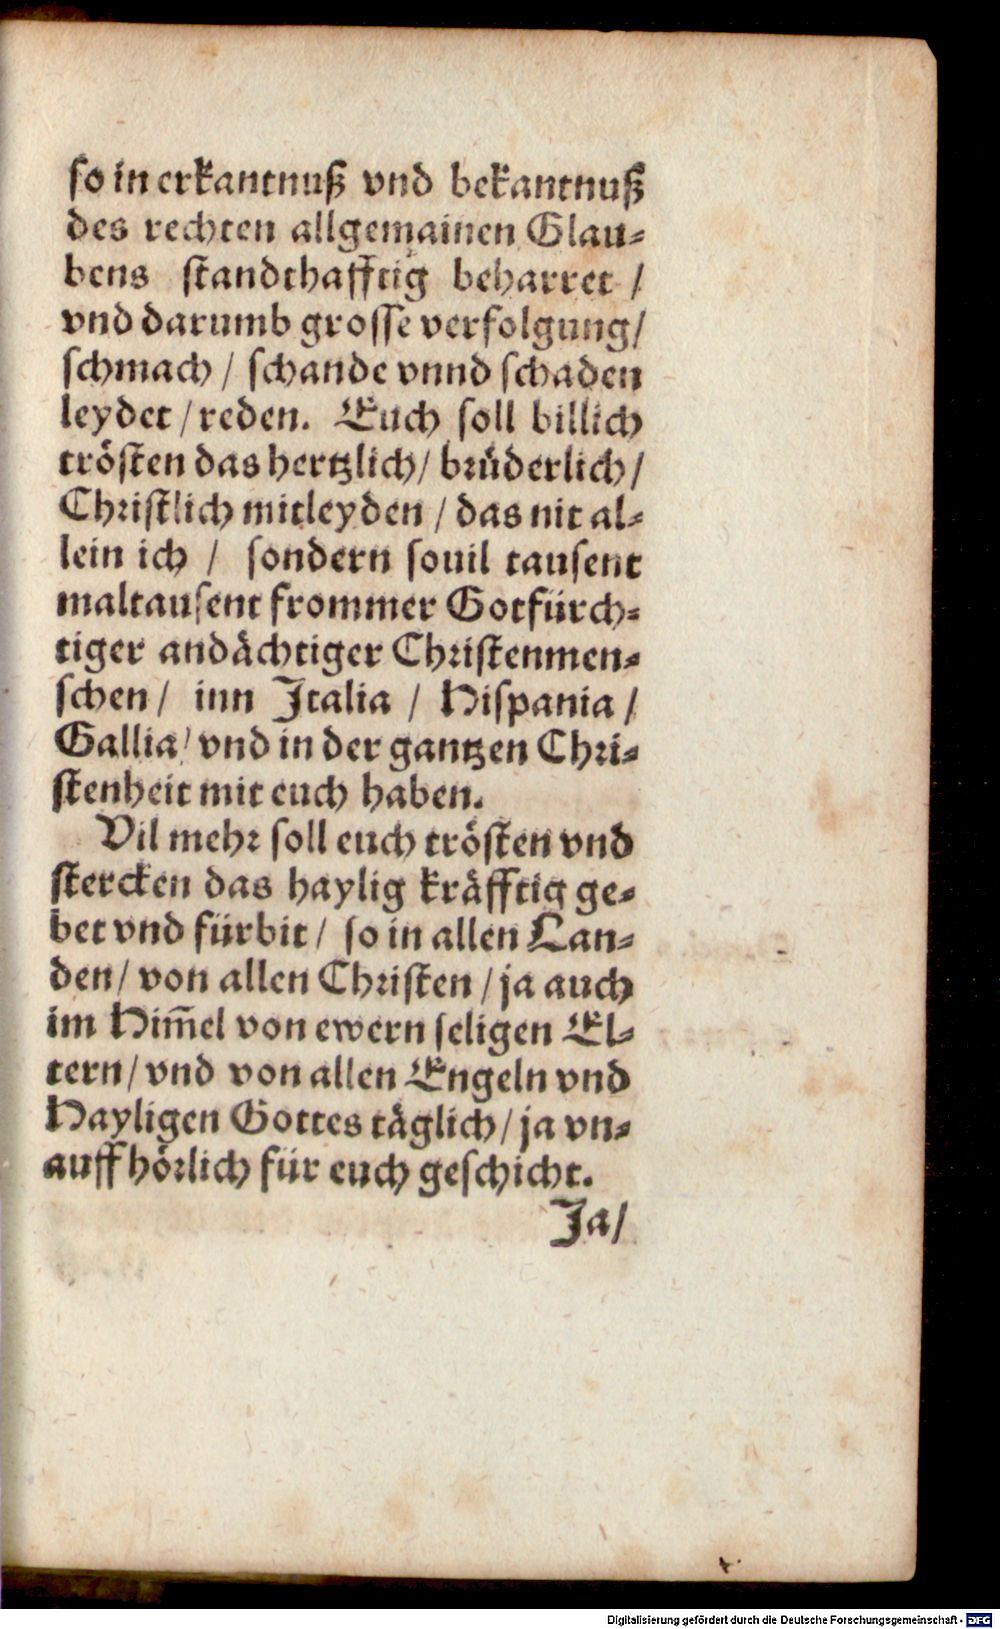 so in erkantnuß vnd bekantnuß
des rechten allgemainen Glau⸗
bens standthafftig beharret /
vnd darumb grosse verfolgung/
schmach / schande vnnd schaden
leydet / reden. Euch soll billich
trösten das hertzlich/ brüderlich/
Christlich mitleyden / das nit al⸗
lein ich / sondern souil tausent
maltausent frommer Gotfürch⸗
tiger andächtiger Christenmen⸗
schen / inn Italia / Hispania /
Gallia/ vnd in der gantzen Chri⸗
stenheit mit euch haben.
Vil mehr soll euch trösten vnd
stercken das haylig kräfftig ge⸗
bet vnd fürbit / so in allen Lan⸗
den / von allen Christen / ja auch
im Him̃el von ewern seligen El⸗
tern / vnd von allen Engeln vnd
Hayligen Gottes täglich / ja vn⸗
auffhörlich für euch geschicht.
Ja/
Digitalisierung gefördert durch die Deutsche Forschungsgemeinschaft - DFG